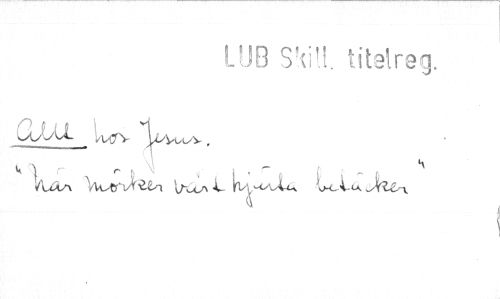 LUB Skill. titelreg.
Allt hos Jesus.
"när mörker vårt hjärta betäcker"